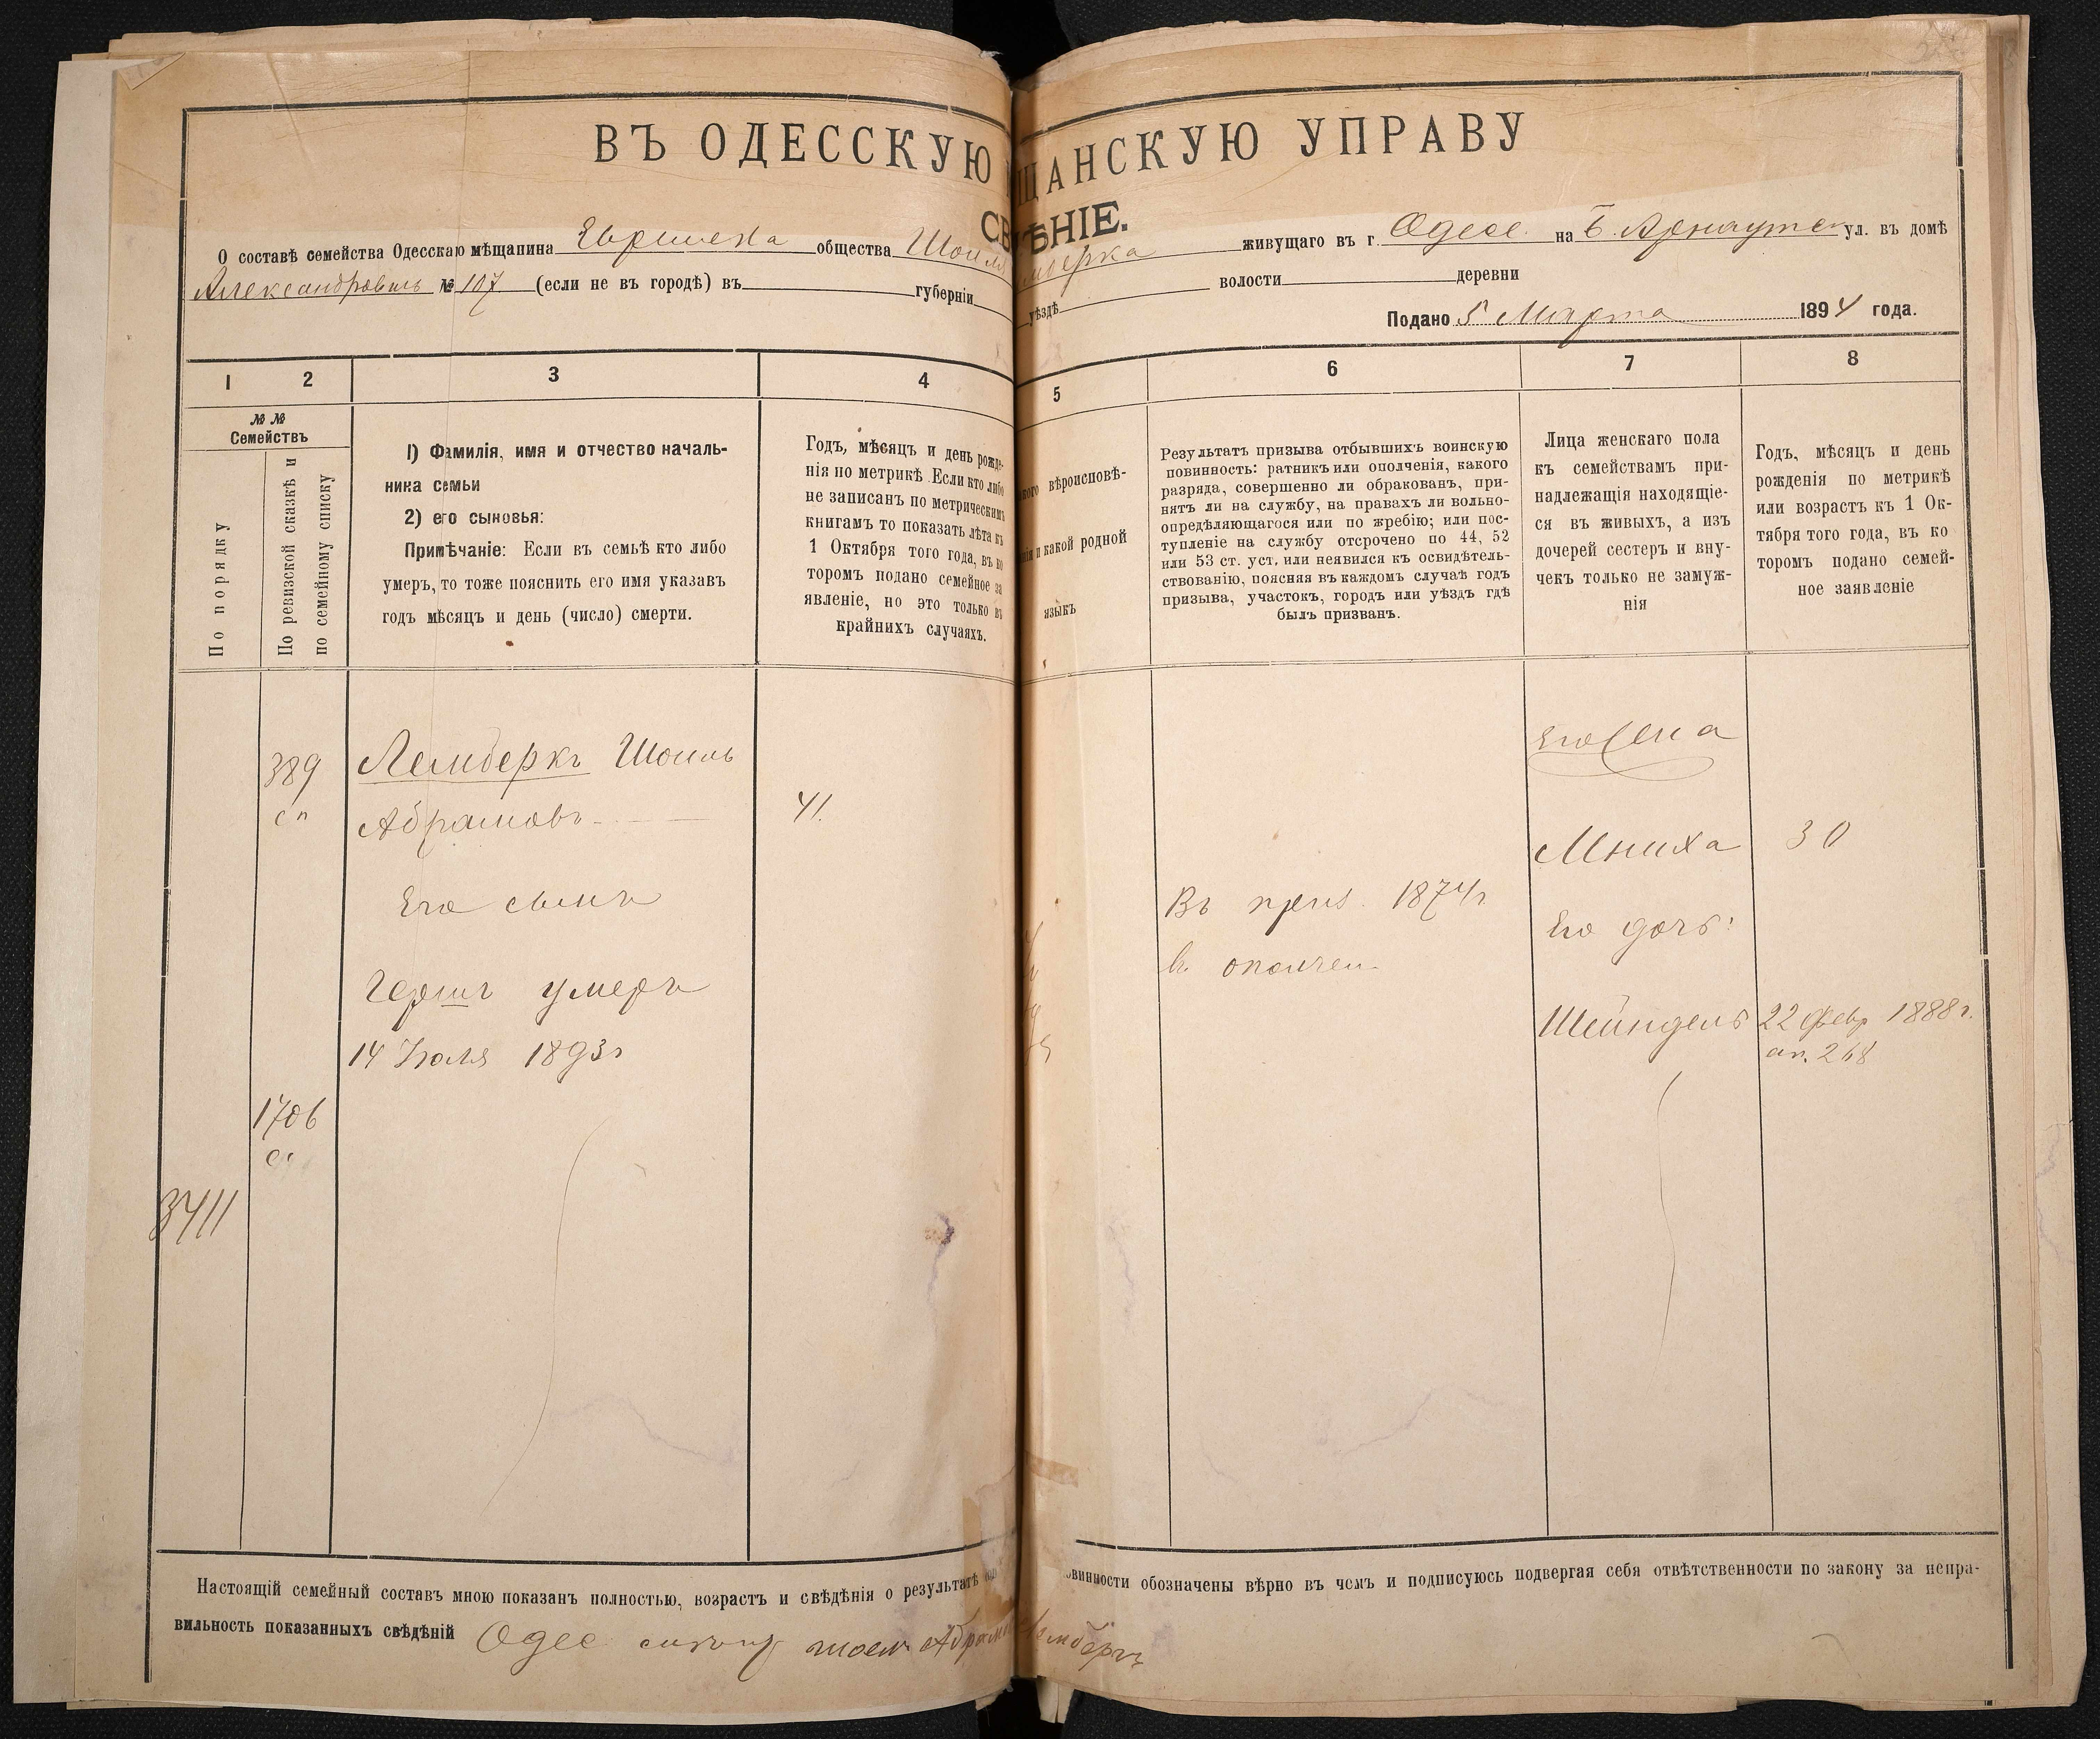 ВЪ ОДЕССКУЮ ЩАНСКУЮ УПРАВУ
СВ ѢНІЕ.
О составѣ семейства Одесскаго мѣщанина общества Шоиля живущаго въ г. Одесс на Б. Арнаутск ул. въ домѣ
№ 107 (если не въ городѣ) въ губерніи уѣздѣ волости деревни
Подано 5 Марта 1894 года.
1 2 3 4 5 6 7 8
№ №
Семействъ
По порядку
По ревизской сказкѣ и
по семейному списку
1) Фамилія, имя и отчество началь-
ника семьи
2) его сыновья:
Примѣчаніе: Если въ семьѣ кто либо
умеръ, то тоже пояснить его имя указавъ
годъ мѣсяцъ и день (число) смерти.
Годъ, мѣсяцъ и день рожде-
нія по метрикѣ Если кто либо
не записанъ по метрическимъ
книгамъ то показать лѣта къ
1 Октября того года, въ ко
торомъ подано семейное за
явленіе, но это только въ
крайнихъ случаяхъ.
вѣроисповѣ-
и какой родной
языкъ
Результатъ призыва отбывшихъ воинскую
повинность: ратникъ или ополченія, какого
разряда, совершенно ли обракованъ, при-
нятъ ли на службу, на правахъ ли вольно-
опредѣляющагося или по жребію; или пос-
тупленіе на службу отсрочено по 44, 52
или 53 ст. уст. или неявился къ освидѣтель-
ствованію, поясняя въ каждомъ случаѣ годъ
призыва, участокъ, городъ или уѣздъ гдѣ
былъ призванъ.
Лица женскаго пола
къ семействамъ при-
надлежащія находящіе-
ся въ живыхъ, а изъ
дочерей сестеръ и вну-
чекъ только не замуж-
нія
Годъ, мѣсяцъ и день
рожденія по метрикѣ
или возрастъ къ 1 Ок-
тября того года, въ ко
торомъ подано семей-
ное заявленіе
389
сп
Лемберкъ Шоиль
Абрамовъ
41.
Его сынъ
Гершъ умеръ
14 Іюля 1893 г
1706
3411
Въ приз. 1874 г.
в. ополчен.
Его жена
Мниха 30
Его дочь:
Шейндель 22 Февр 1888 г.
ап. 268
Настоящій семейный составъ мною показанъ полностью, возрастъ и свѣдѣнія о результатѣ овинности обозначены вѣрно въ чемъ и подписуюсь подвергая себя отвѣтственности по закону за непра-
вильность показанныхъ свѣдѣній Одес